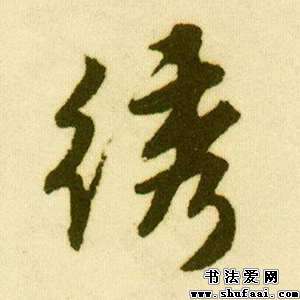 绣
书法爱网
www.shufaai.com